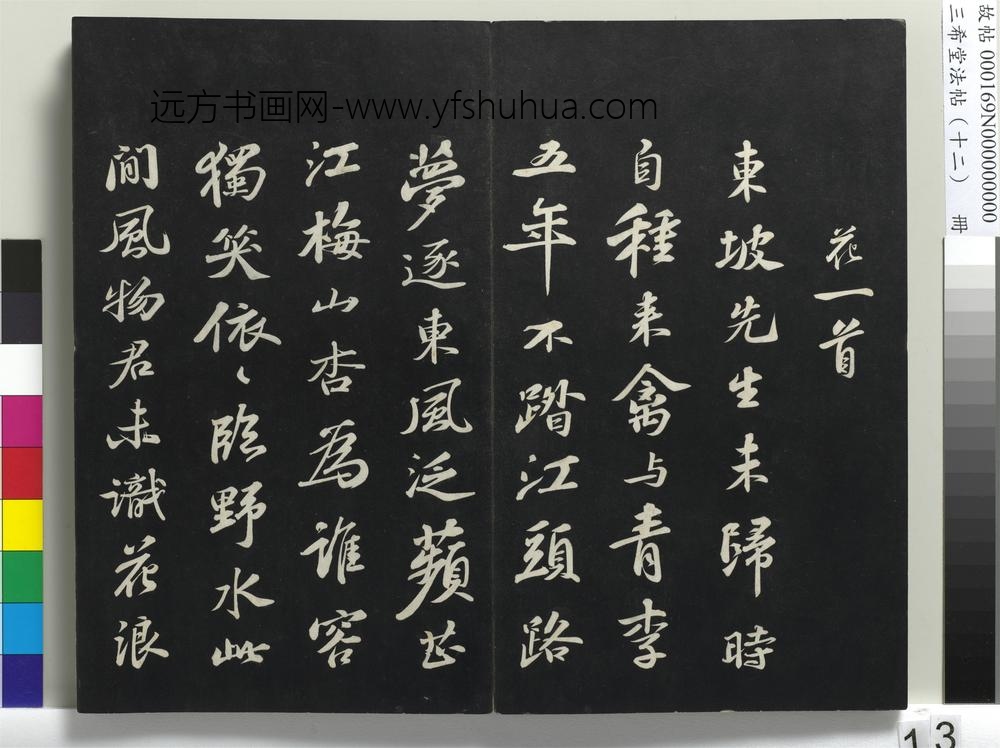 远方书画网-www.yfshuhua.com
故帖 000169N000000000
三希堂法帖（十二） 冊
花一首
東坡先生未歸時
自種来禽与青李
五年不踏江頭路
夢逐東風泛蘋芷
江梅山杏為誰容
獨笑依〻臨野水此
間風物君未識花浪
13